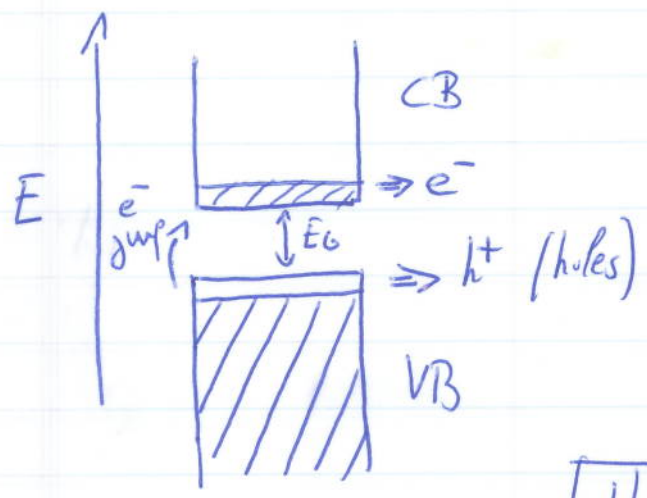 CB
E
e⁻
jump
⇒ e⁻
E₆
⇒ h⁺ (holes)
VB